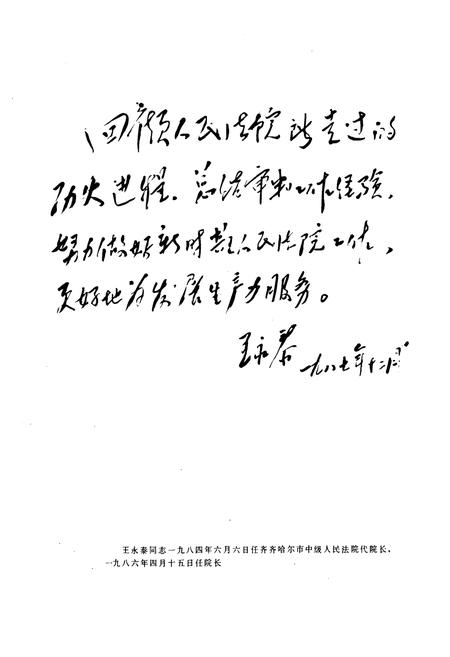 回顾人民法院所走过的
历史进程,总结审判工作经验,
努力做好新时期人民法院工作,
更好地为发展生产力服务。
王永泰 一九八七年十二月
王永泰同志一九八四年六月六日任齐齐哈尔市中级人民法院代院长,
一九八六年四月十五日任院长